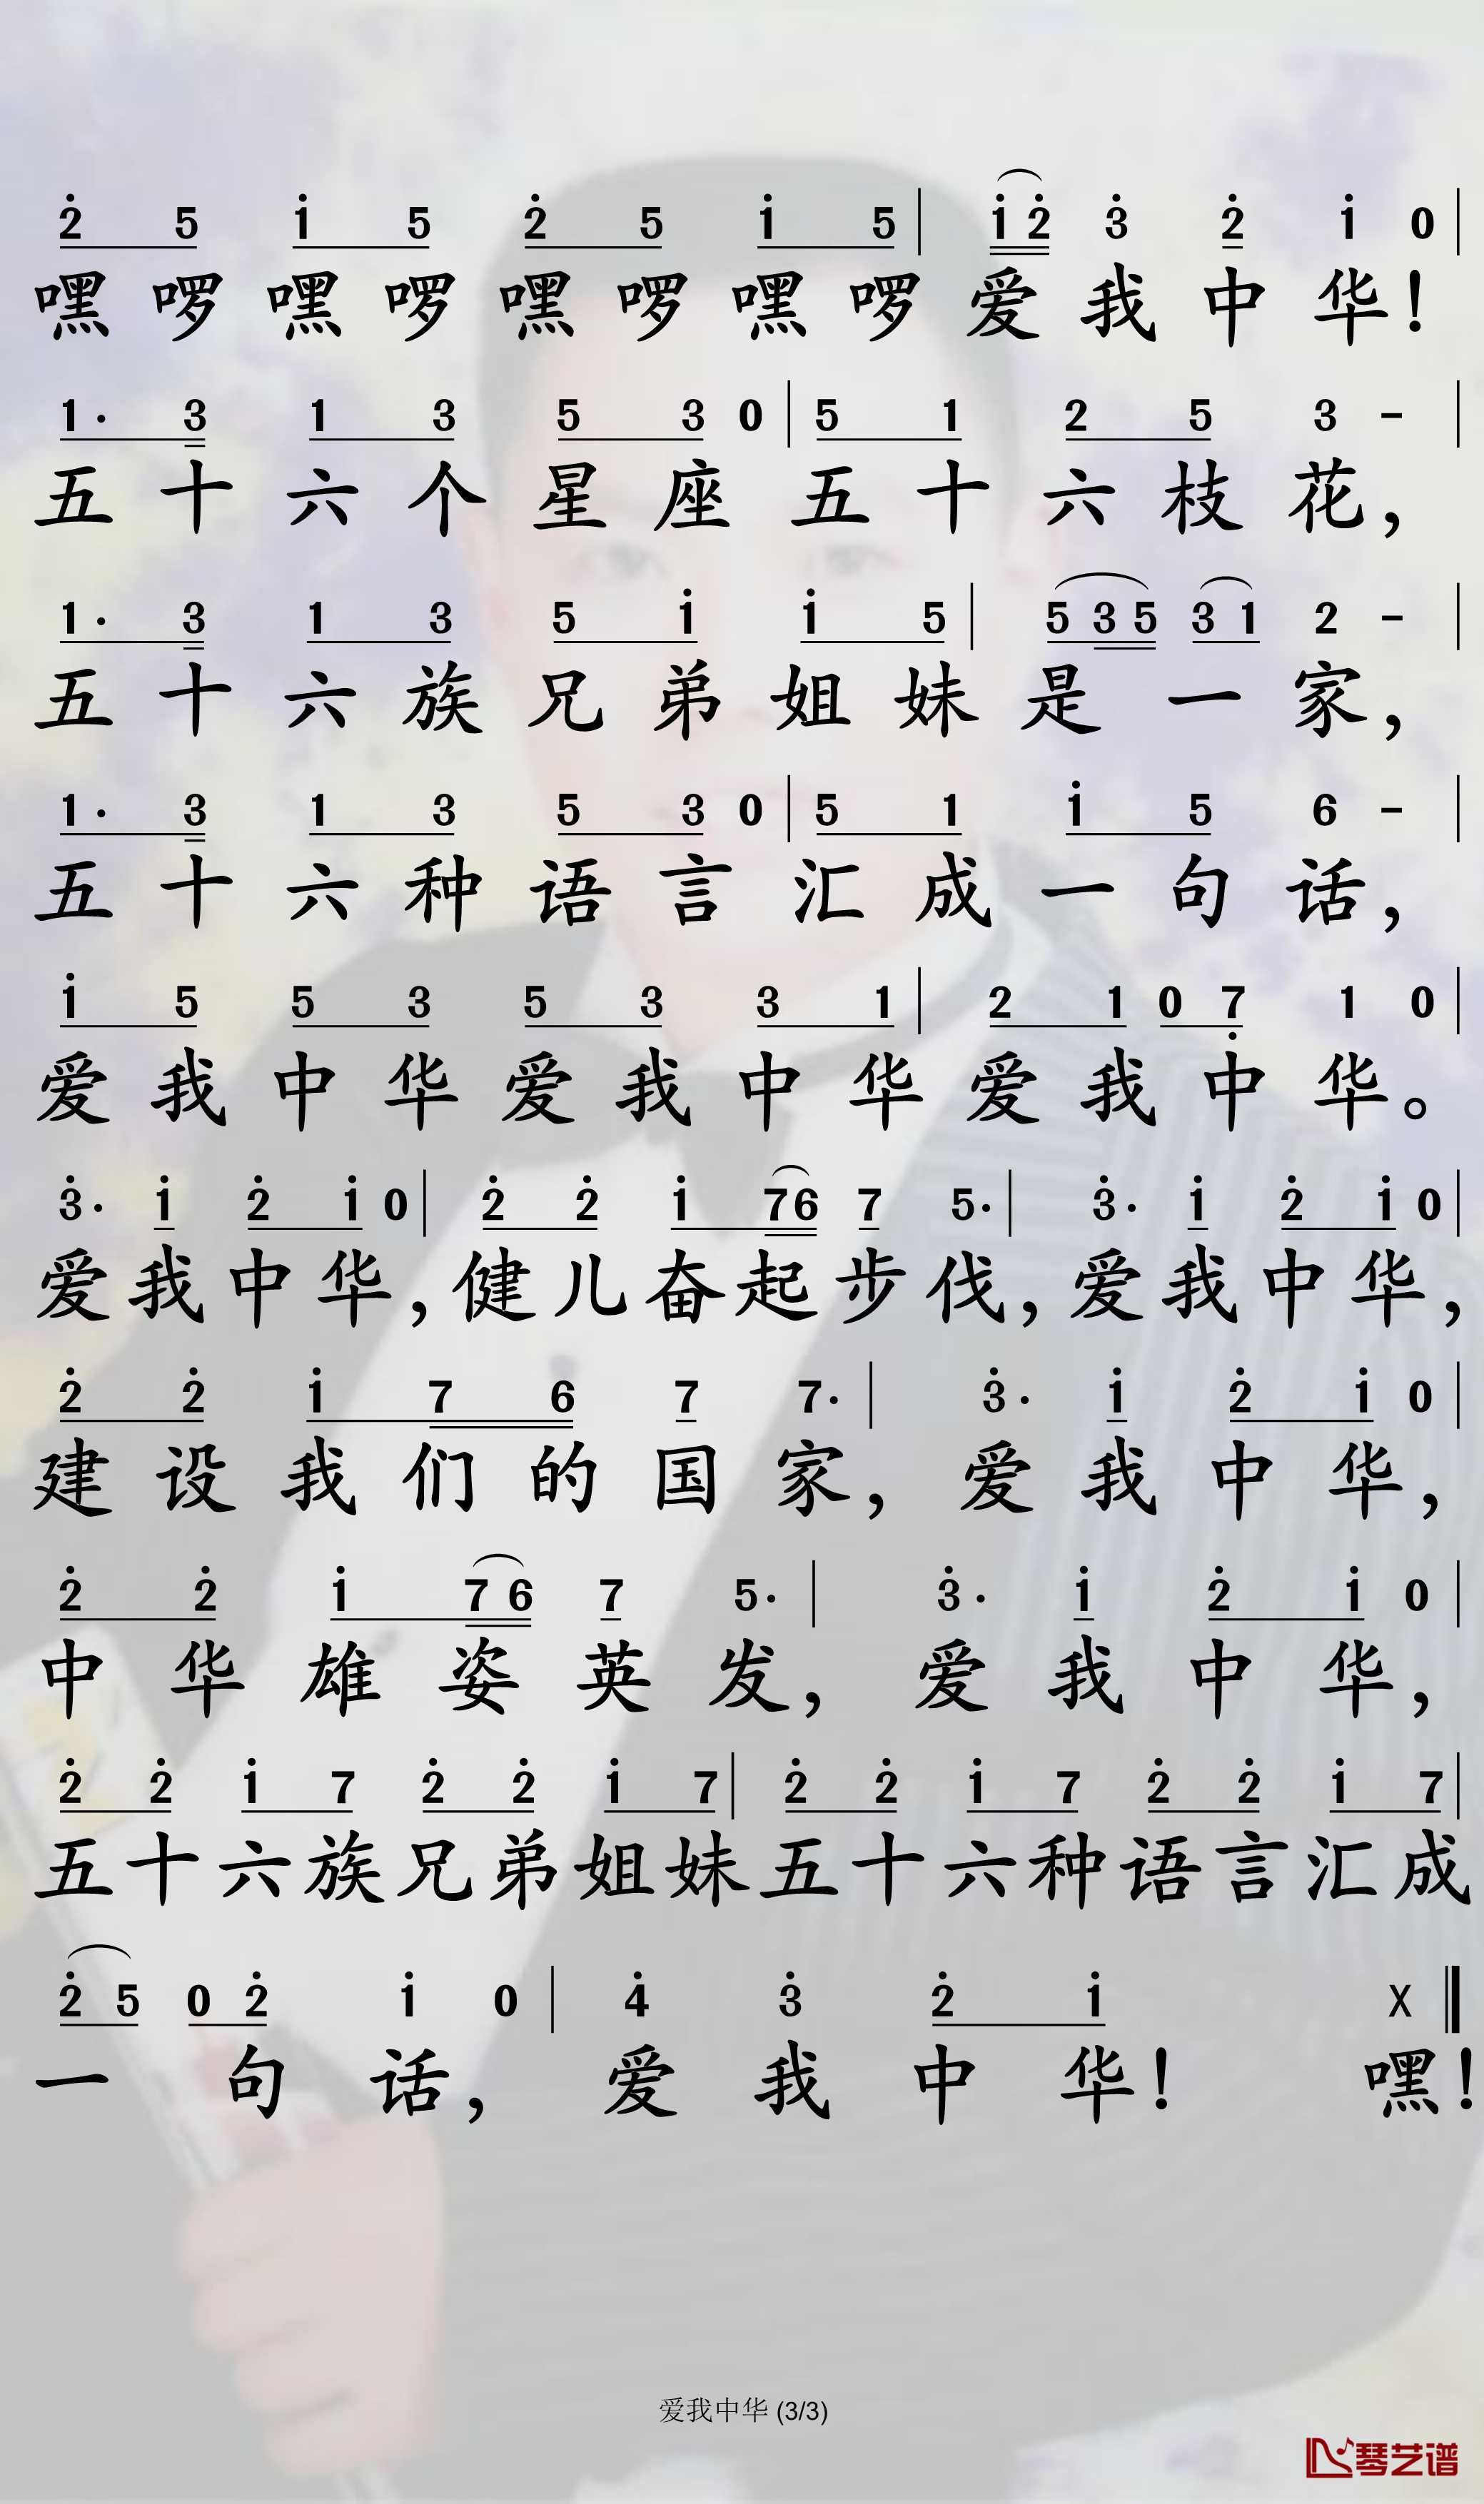 2̇ 5 1̇ 5 2̇ 5 1̇ 5 | 1̇ 2̇ 3̇ 2̇ 1̇ 0 |
嘿啰嘿啰嘿啰嘿啰爱我中华！
1· 3 1 3 5 3 0 | 5 1 2 5 3 - |
五十六个星座五十六枝花，
1· 3 1 3 5 1̇ 1̇ 5 | 5 3 5 3 1 2 - |
五十六族兄弟姐妹是一家，
1· 3 1 3 5 3 0 | 5 1 1̇ 5 6 - |
五十六种语言汇成一句话，
1̇ 5 5 3 5 3 3 1 | 2 1 0 7̣ 1 0 |
爱我中华爱我中华爱我中华。
3̇· 1̇ 2̇ 1̇ 0 | 2̇ 2̇ 1̇ 7 6 7 5· | 3̇· 1̇ 2̇ 1̇ 0 |
爱我中华，健儿奋起步伐，爱我中华，
2̇ 2̇ 1̇ 7 6 7 7· | 3̇· 1̇ 2̇ 1̇ 0 |
建设我们的国家，爱我中华，
2̇ 2̇ 1̇ 7 6 7 5· | 3̇· 1̇ 2̇ 1̇ 0 |
中华雄姿英发，爱我中华，
2̇ 2̇ 1̇ 7 2̇ 2̇ 1̇ 7 | 2̇ 2̇ 1̇ 7 2̇ 2̇ 1̇ 7 |
五十六族兄弟姐妹五十六种语言汇成
2̇ 5 0 2̇ 1̇ 0 | 4̇ 3̇ 2̇ 1̇ X ‖
一句话，爱我中华！嘿！
爱我中华 (3/3)
琴艺谱